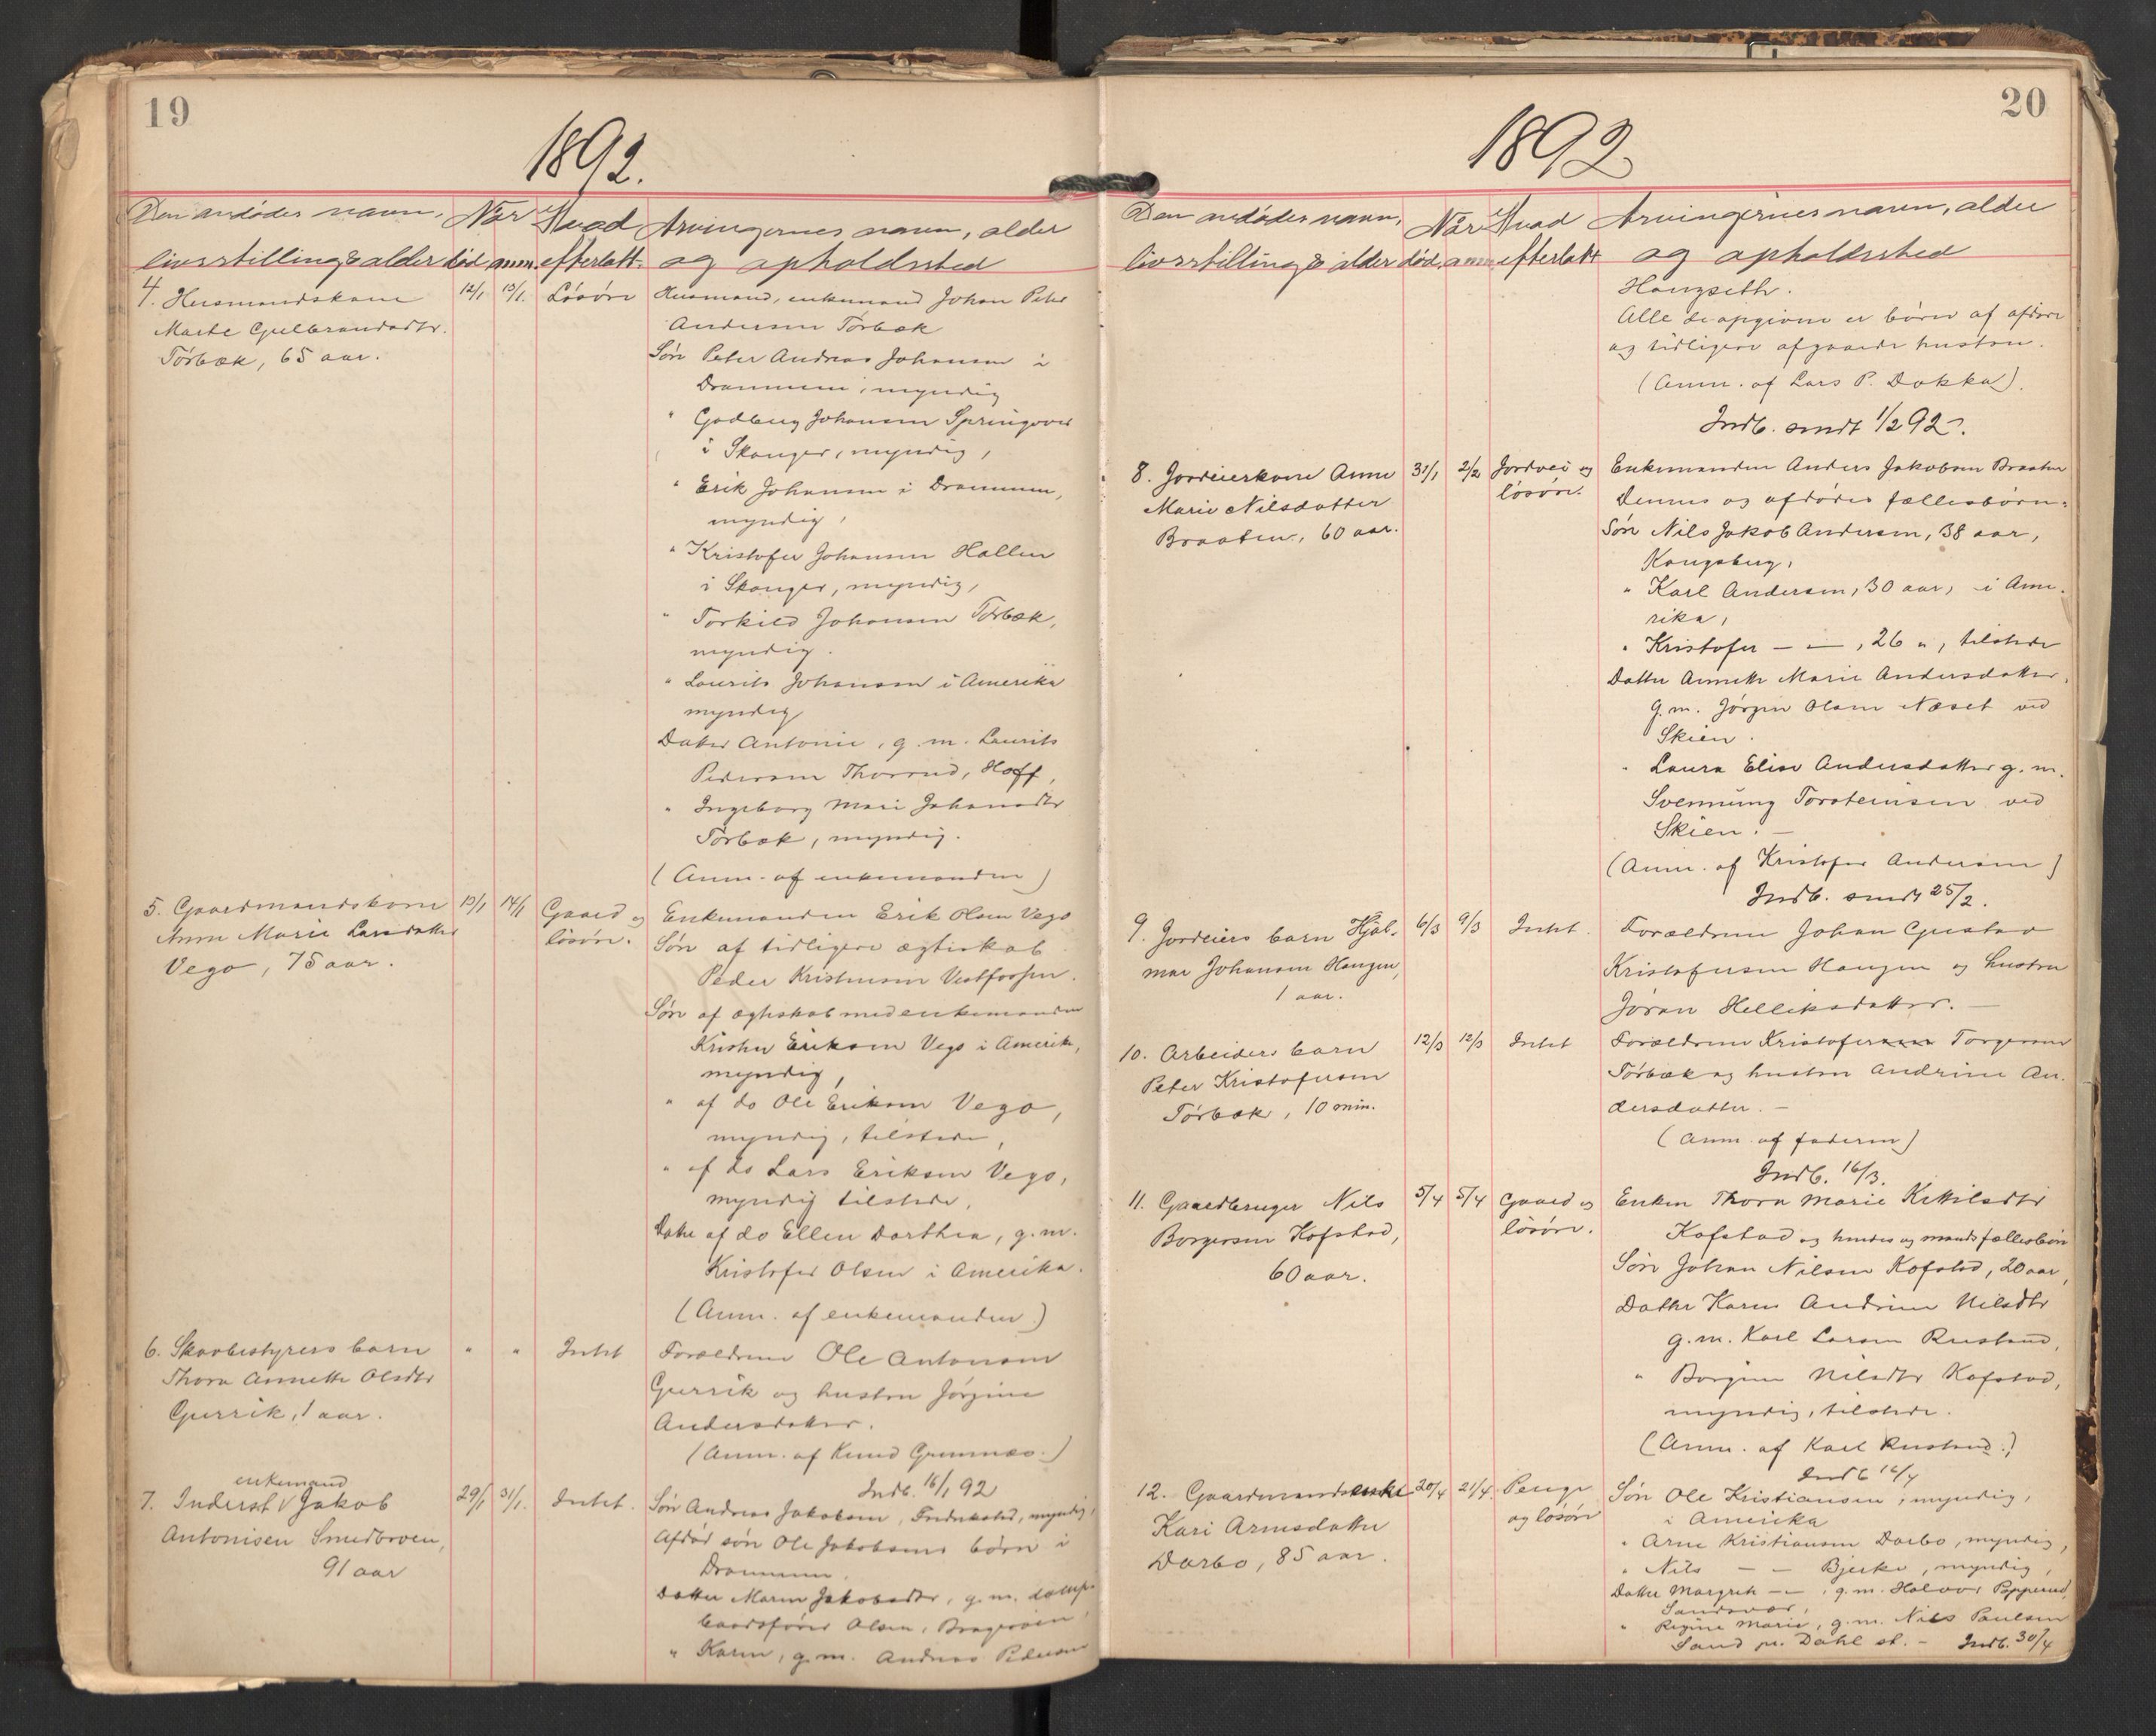 19
1892.
Den avdødes navn, Når Hvad Arvingernes navn, alder
livsstilling & alder død anm. efterlatt. og opholdssted
4. Husmandskone 12/1 13/1. Løsøre Husmand, enkemand Johan Peter
Marte Gulbrandsdtr. Andersen Tørbæk
Tørbæk, 65 aar. Søn Peter Andreas Johansen i
Drammen, myndig
" Gudberg Johansen Springover
i Skoger, myndig,
" Erik Johansen i Drammen,
myndig,
" Kristofer Johansen Hallen
i Skoger, myndig,
" Torkild Johansen Tørbæk,
myndig.
" Laurits Johansen i Amerika
myndig
Datter Antonie, g. m. Laurits
Pedersen Thorrud, Hoff,
" Ingeborg Mari Johansdtr
Tørbæk, myndig.
(Anm. af enkemanden)
5. Gaardmandskone 13/1 14/1 Gaard og Enkemanden Erik Olsen Vego
Anne Marie Larsdatter løsøre. Søn af tidligere ægteskab
Vego, 75 aar. Peder Kristensen Vestfossen.
Søn af ægteskab med enkemanden
Krister Eriksen Vego i Amerika,
myndig,
" af do Ole Eriksen Vego,
myndig, tilstede,
" af do Lars Eriksen Vego,
myndig tilstede,
Datter af do Ellen Dorthea, g. m.
Kristofer Olsen i Amerika.
(Anm. af enkemanden)
6. Skovbestyrers barn " " Intet Forældrene Ole Antonsen
Thora Annette Olsdtr Gurrik og hustru Jørgine
Gurrik, 1 aar. Andersdatter.
(Anm. af Knud Grumnæs.)
Indb. 16/1 92
enkemand
7. Inderst Jakob 29/1 31/1. Intet. Søn Andreas Jakobsen, Fredrikstad, myndig,
Antonisen Smedbroen, Afdød søn Ole Jakobsens børn i
91 aar Drammen.
Datter Maren Jakobsdtr, g. m. damp-
baadsfører Olsen, Bragerøen,
" Karen, g. m. Andreas Pedersen
20
1892
Den avdødes navn, Når Hvad Arvingernes navn, alder
livsstilling & alder død. anm. efterlatt og opholdssted
Haugseth.
Alle de opgivne er børn af afdøde
og tidligere afgaaede hustru.
(Anm. af Lars P. Dokka).
Indb. sendt 1/2 92.
8. Jordeierkone Anne 31/1 2/2 Jordvei og Enkemanden Anders Jakobsen Braaten
Marie Nilsdatter løsøre. Dennes og afdødes fællesbørn:
Braaten, 60 aar. Søn Nils Jakob Andersen, 38 aar,
Kongsberg,
" Karl Andersen, 30 aar, i Ame-
rika,
" Kristofer — — , 26 ", tilstede
Datter Annette Marie Andersdatter,
g. m. Jørgen Olsen Næset ved
Skien.
" Laura Elise Andersdatter g. m.
Svennung Torsteinsen ved
Skien. —
(Anm. af Kristofer Andersen)
Indb. sendt 25/2.
9. Jordeiers barn Hjal- 6/3 9/3 Intet. Forældrene Johan Gustav
mar Johansen Haugen, Kristofersen Haugen og hustru
1 aar. Jøran Helleksdatter. —
10. Arbeiders barn 12/3 12/3 Intet Forældrene Kristofer Torgersen
Peter Kristofersen Tørbæk og hustru Andrine An-
Tørbæk, 10 min. dersdatter. —
(Anm. af faderen)
Indb. 16/3.
11. Gaardbruger Nils 5/4 5/4 Gaard og Enken Thora Marie Kittilsdtr
Borgersen Kofstad, løsøre. Kofstad og hendes og mands fællesbørn
60 aar. Søn Johan Nilsen Kofstad, 20 aar,
Datter Karen Andrine Nilsdtr
g. m. Karl Larsen Rustand,
" Borgine Nilsdtr Kofstad,
myndig, tilstede.
(Anm. af Karl Rustand.)
Indb 16/4
12. Gaardmandsenke 20/4 21/4. Penge Søn Ole Kristiansen, myndig,
Kari Arnesdatter og løsøre i Amerika
Darbo, 85 aar. " Arne Kristiansen Darbo, myndig,
" Nils — — Bjerke, myndig,
Datter Margrete — — , g. m. Halvor Popperud,
Sandsvær,
" Regine Marie, g. m. Nils Paulsen
Sand pr. Dahl st. — Indb. 30/4